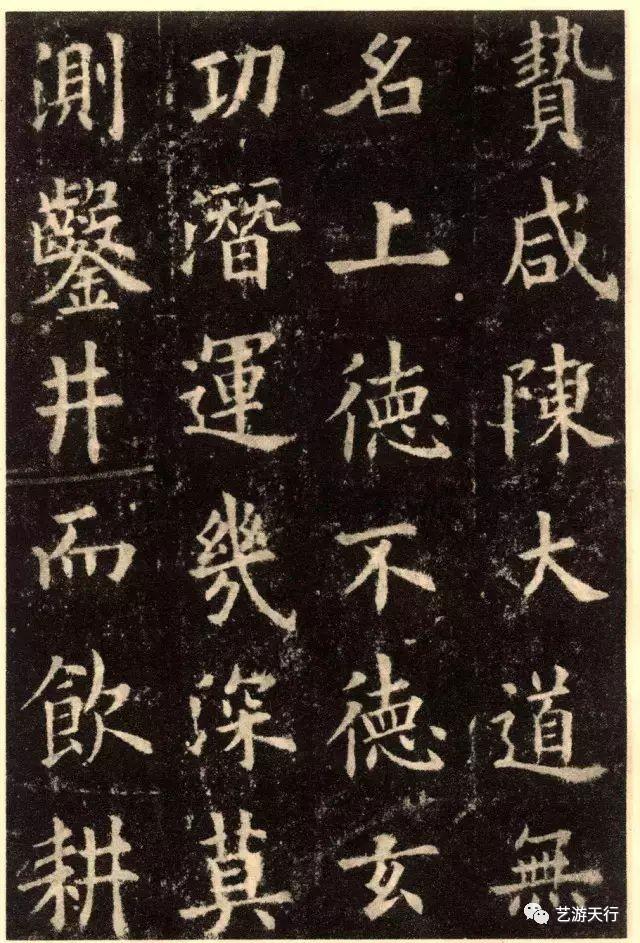 贄咸陳大道無
名上徳不徳玄
功潛運幾深莫
測鑿井而飲耕
艺游天行